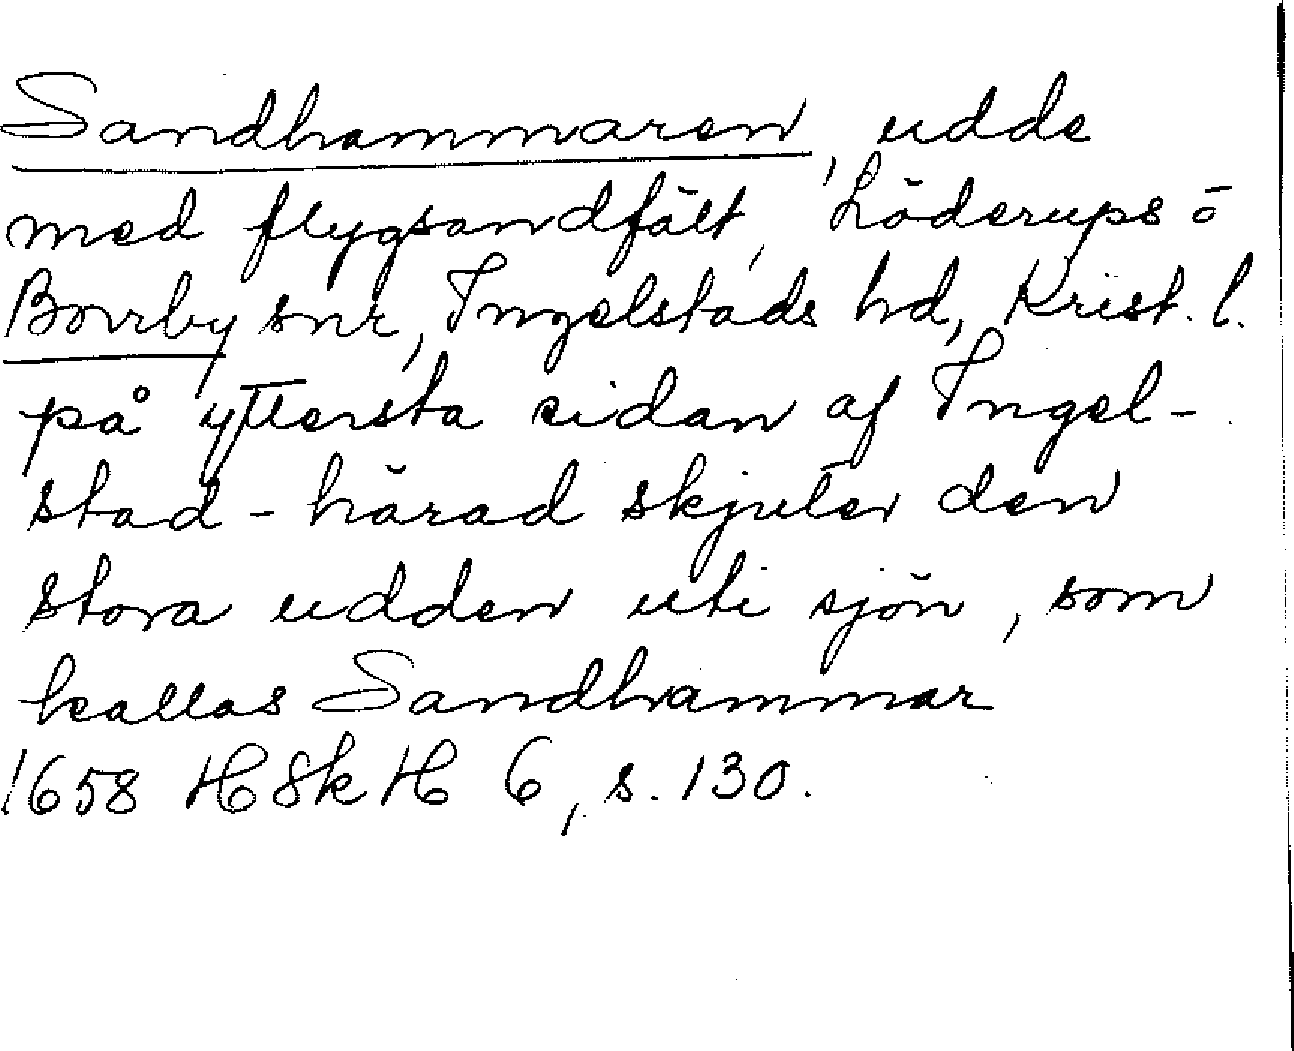 Sandhammaren, udde
med flygsandfält, Löderups o
Borrby snr, Ingelstads hd, Krist. l.
på yttersta sidan af Ingel-
stad-härad skjuter den
stora udden uti sjön, som
kallas Sandhammar
1658 HSkH 6, s. 130.